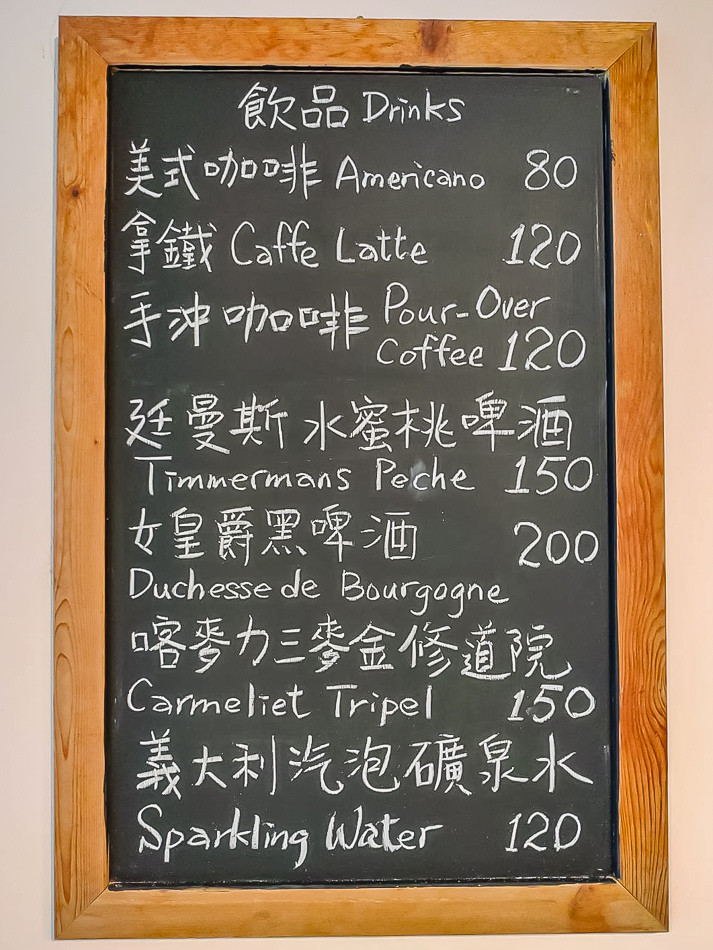 飲品 Drinks
美式咖啡 Americano 80
拿鐵 Caffe Latte 120
手沖咖啡 Pour-Over
Coffee 120
廷曼斯 水蜜桃啤酒
Timmermans Peche 150
女皇爵黑啤酒 200
Duchesse de Bourgogne
喀麥力三麥金修道院
Carmeliet Tripel 150
義大利汽泡礦泉水
Sparkling Water 120